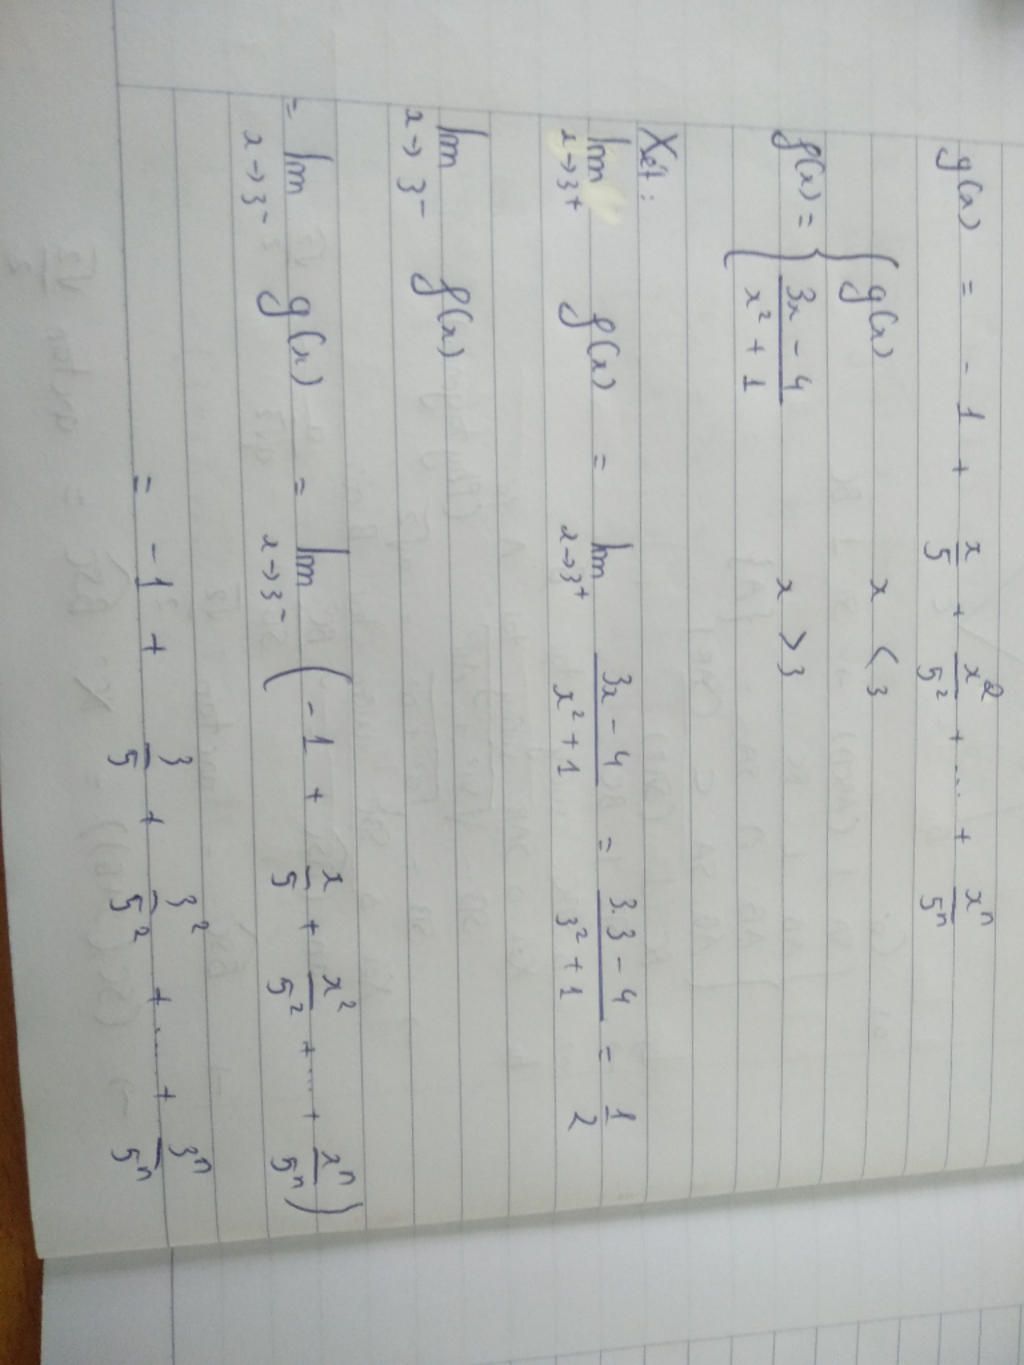 g(x) = - 1 + x/5 + x²/5² + ... + xⁿ/5ⁿ
f(x) = { g(x) x < 3
{ (3x - 4)/(x² + 1) x > 3
Xét:
lim x→3⁺ f(x) = lim x→3⁺ (3x - 4)/(x² + 1) = (3.3 - 4)/(3² + 1) = 1/2
lim x→3⁻ f(x)
= lim x→3⁻ g(x) = lim x→3⁻ (- 1 + x/5 + x²/5² + ... + xⁿ/5ⁿ)
= - 1 + 3/5 + 3²/5² + ... + 3ⁿ/5ⁿ